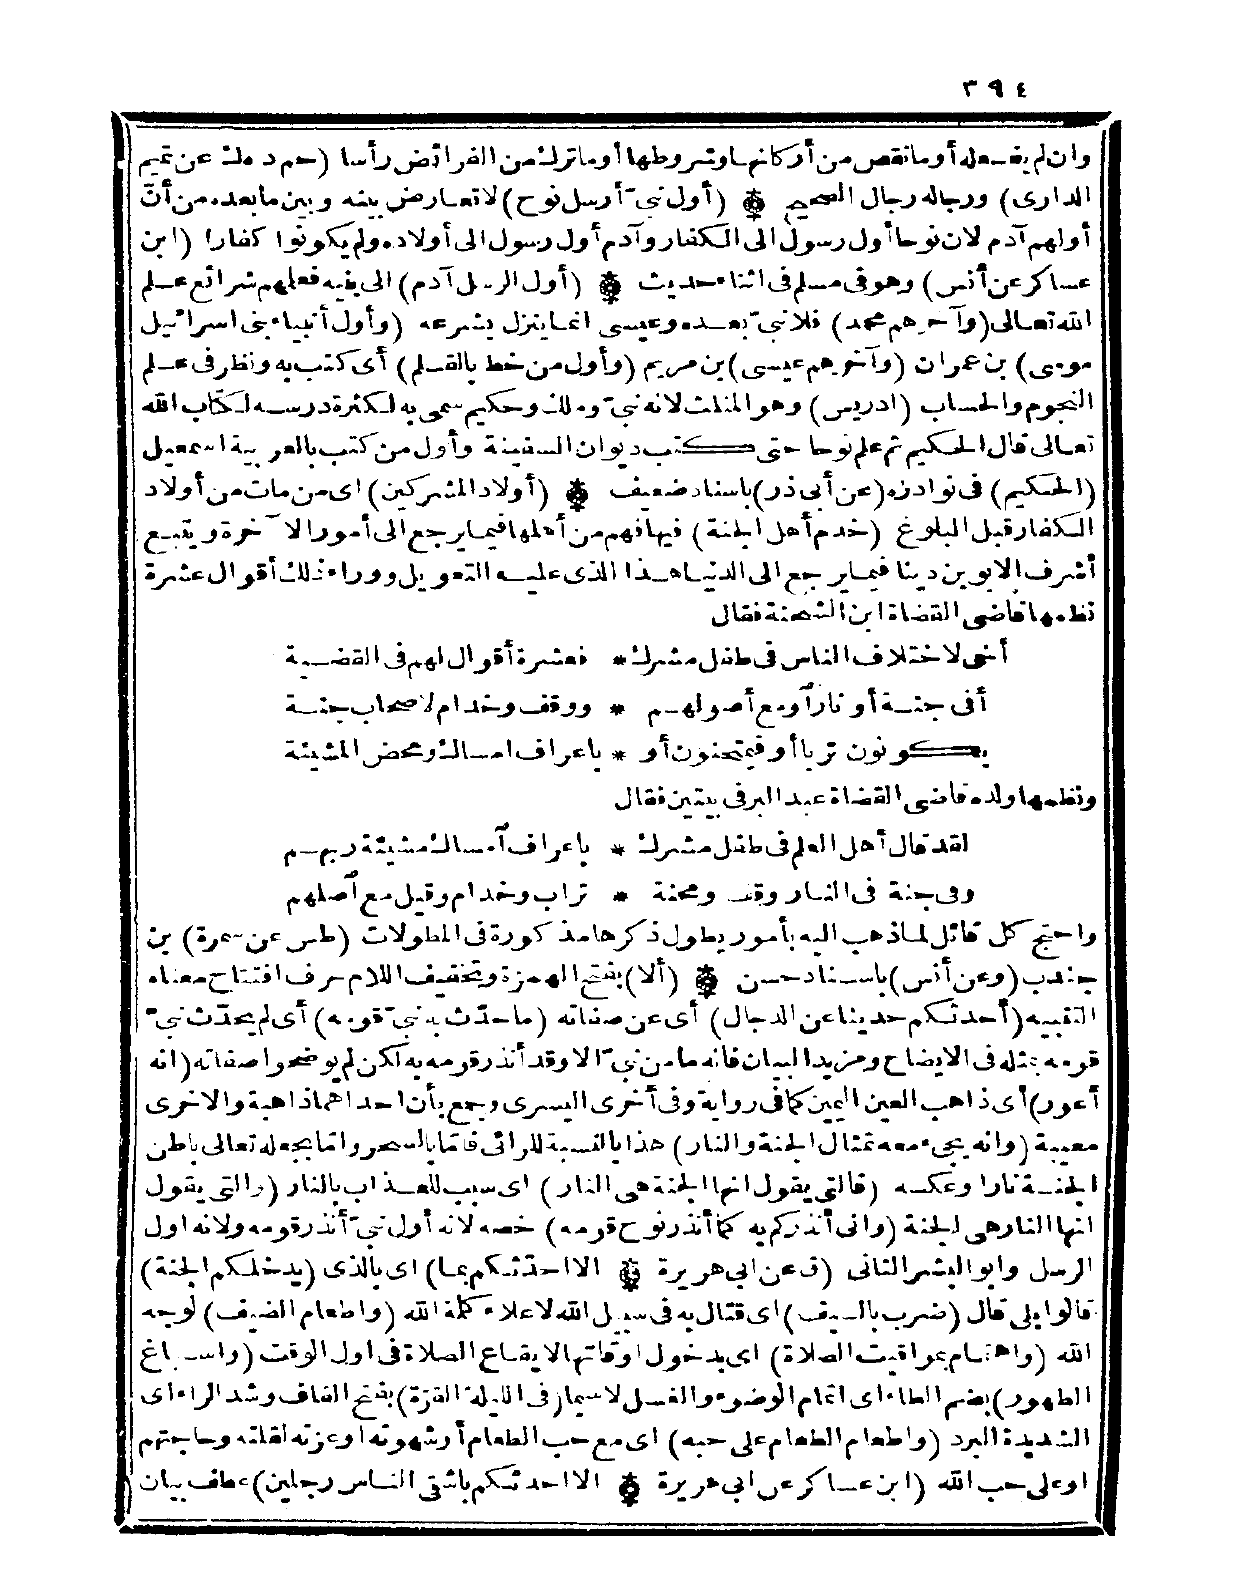 ٣٩٤
وان لم يفعله أو ما نقص من أركانها وشروطها أو ما ترك من الفرائض رأسا (حم د ه ك عن تميم
الدارى) ورجاله رجال الصحيح ۞ (أول نبىّ أرسل نوح) لا تعارض بينه وبين ما بعده من أنّ
أولهم آدم لان نوحا أول رسول الى الكفار وآدم أول رسول الى أولاده ولم يكونوا كفارا (ابن
عساكر عن أنس) وهو فى مسلم فى اثناء حديث ۞ (أول الرسل آدم) الى بنيه فعلمهم شرائع علم
الله تعالى (وآخرهم محمد) فلا نبىّ بعده وعيسى انما ينزل بشرعه (وأول أنبياء بنى اسرائيل
موسى) بن عمران (وآخرهم عيسى) بن مريم (وأول من خط بالقلم) أى كتب به ونظر فى علم
النجوم والحساب (ادريس) وهو المثلث لانه نبىّ وملك وحكيم سمى به لكثرة درسه لكتاب الله
تعالى قال الحكيم ثم علم نوحا حتى كتب ديوان السفينة وأول من كتب بالعربية اسمعيل
(الحكيم) فى نوادره (عن أبى ذر) باسناد ضعيف ۞ (أولاد المشركين) اى من مات من أولاد
الكفار قبل البلوغ (خدم أهل الجنة) فيها فهم من أهلها فيما يرجع الى أمور الآخرة ويتبع
أشرف الابوين دينا فيما يرجع الى الدنيا هذا الذى عليه التعويل ووراء ذلك أقوال عشرة
نظمها قاضى القضاة ابن الشحنة فقال
أخى لاختلاف الناس فى طفل مشرك * فعشرة أقوال لهم فى القضية
أفى جنة أو نار أو مع أصولهم * ووقف وخدام لاصحاب جنة
يكونون تربا أو فيمتحنون أو * باعراف امساك ومحض المشيئة
ونظمها ولده قاضى القضاة عبد البر فى بيتين فقال
لقد قال أهل العلم فى طفل مشرك * باعراف أمساك مشيئة ربهم
وفى جنة فى النار وقف ومحنة * تراب وخدام وقيل مع أصلهم
واحتج كل قائل لما ذهب اليه بأمور يطول ذكرها مذكورة فى المطولات (طس عن سمرة) بن
جندب (وعن أنس) باسناد حسن ۞ (ألا) بفتح الهمزة وتخفيف اللام حرف افتتاح معناه
التنبيه (أحدثكم حديثا عن الدجال) أى عن صفاته (ما حدّث به نبىّ قومه) أى لم يحدّث نبىّ
قومه بمثله فى الايضاح ومزيد البيان فانه ما من نبىّ الا وقد أنذر قومه به لكن لم يوضحوا صفاته (انه
أعور) أى ذاهب العين اليمين كما فى رواية وفى أخرى اليسرى وجمع بأن احداهما ذاهبة والاخرى
معيبة (وانه يجىء معه تمثال الجنة والنار) هذا بالنسبة للرائى فامّا بالسحر وامّا بجعله تعالى باطن
الجنة نارا وعكسه (فالتى يقول انها الجنة هى النار) اى سبب للعذاب بالنار (والتى يقول
انها النار هى الجنة (وانى أنذركم به كما أنذر نوح قومه) خصه لانه أول نبىّ أنذر قومه ولانه اول
الرسل وابو البشر الثانى (ق عن ابى هريرة ۞ الا احدّثكم بما) اى بالذى (يدخلكم الجنة)
قالوا بلى قال (ضرب بالسيف) اى قتال به فى سبيل الله لاعلاء كلمة الله (واطعام الضيف) لوجه
الله (واهتمام بمواقيت الصلاة) اى بدخول اوقاتها لايقاع الصلاة فى اول الوقت (واسباغ
الطهور) بضم الطاء اى اتمام الوضوء والغسل لا سيما (فى الليلة القرّة) بفتح القاف وشد الراء اى
الشديدة البرد (واطعام الطعام على حبه) اى مع حب الطعام أو شهوته او عزته لقلته وحاجتهم
او على حب الله (ابن عساكر عن ابى هريرة ۞ الا احدثكم باشقى الناس رجلين) عطف بيان